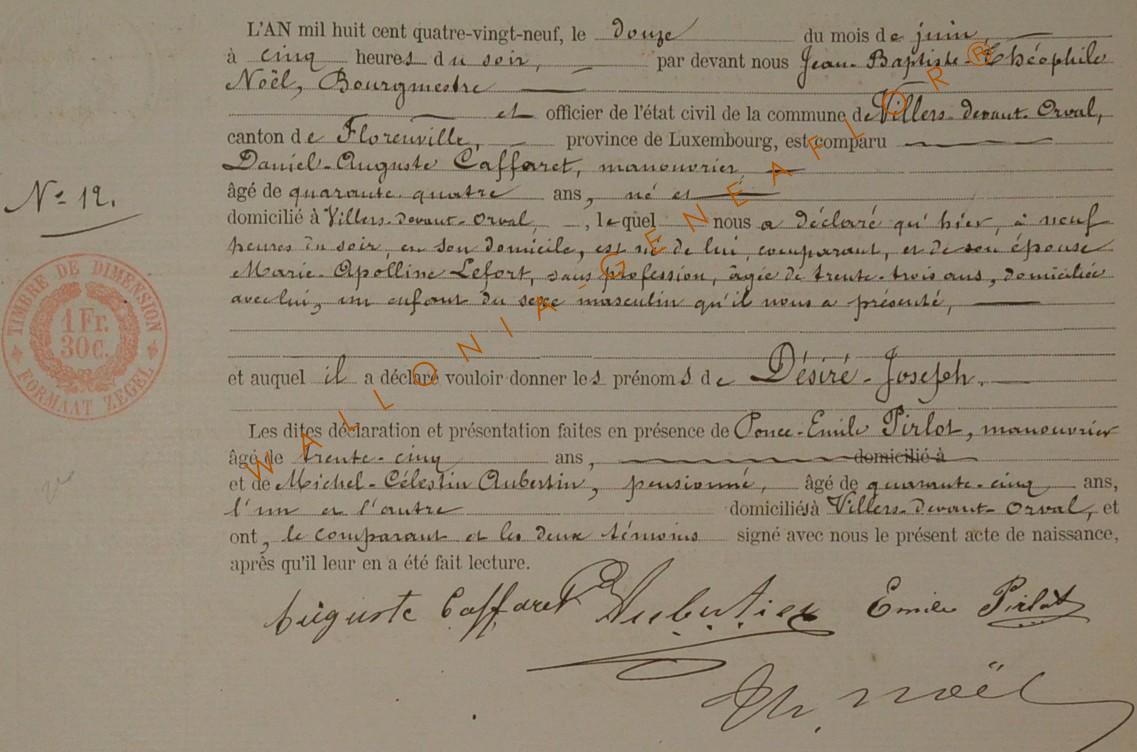 L'AN mil huit cent quatre-vingt-neuf, le douze du mois de juin,
à cinq heures du soir, par devant nous Jean-Baptiste-Théophile
Noël, Bourgmestre
et officier de l'état civil de la commune de Villers-devant-Orval,
canton de Florenville, province de Luxembourg, est comparu
Daniel-Auguste Caffaret, manouvrier,
âgé de quarante-quatre ans, né et
domicilié à Villers-devant-Orval, lequel nous a déclaré qu'hier, à neuf
heures du soir, en son domicile, est né de lui, comparant, et de son épouse
Marie-Apolline Lefort, sans profession, âgée de trente-trois ans, domiciliée
avec lui, un enfant du sexe masculin qu'il nous a présenté,
et auquel il a déclaré vouloir donner les prénoms de Désiré-Joseph.
Les dites déclaration et présentation faites en présence de Ponce-Emile Pirlot, manouvrier
âgé de trente-cinq ans, domicilié à
et de Michel-Célestin Aubertin, pensionné, âgé de quarante-cinq ans,
l'un et l'autre domiciliés à Villers-devant-Orval, et
ont, le comparant et les deux témoins signé avec nous le présent acte de naissance,
après qu'il leur en a été fait lecture.
Auguste Caffaret Aubertin Emile Pirlot
Th. Noël
Nº 12.
TIMBRE DE DIMENSION
1 Fr.
30c.
FORMAAT ZEGEL
WALLONIA-GENEAFLOR®